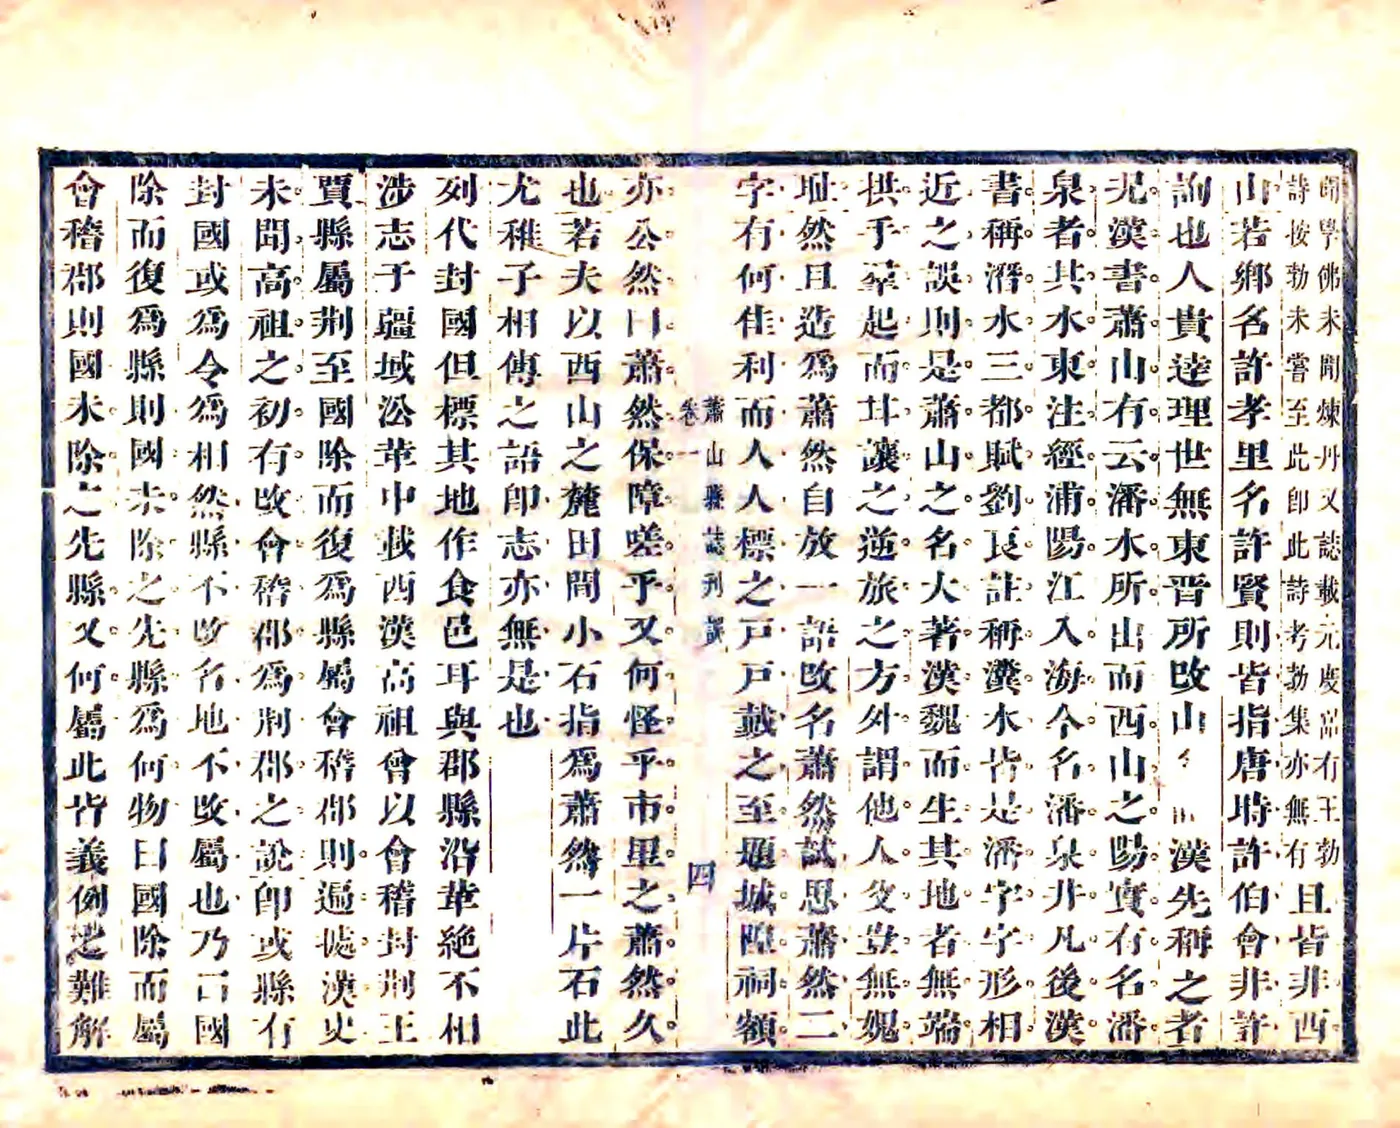 師學佛未聞煉丹又誌載元慶
詩按勃未嘗至此即此詩考勃集亦無有
有王勃
且皆非西
山若鄉名許孝里名許賢則皆指唐時許伯會非許
詢也人貴達理世無東晉所改山
漢先稱之者
况漢書蕭山有云潘水所出而西山之陽實有名潘
泉者其水東注經浦陽江入海今名潘泉井凡後漢
書稱潛水三都賦劉良註稱瀵水皆是潘字字形相
近之誤則是蕭山之名大著漢魏而生其地者無端
拱手羣起而甘讓之逆旅之方外謂他人父豈無媿
耻然且造為蕭然自放一語改名蕭然試思蕭然二
字有何佳利而人人標之戸戸戴之至題城隍祠額
蕭山縣誌刊誤
卷一
四
亦公然曰蕭然保障嗟乎又何怪乎市里之蕭然久
也若夫以西山之麓田間小石指為蕭然一片石此
尤稚子相傳之語卽志亦無是也
列代封國但標其地作食邑耳與郡縣沿革絶不相
涉志于疆域沿革中載西漢高祖會以會稽封荆王
賈縣屬荆至國除而復為縣屬會稽郡則遍攷漢史
未聞高祖之初有改會稽郡為荆郡之說卽或縣有
封國或為令為相然縣不改名地不改屬也乃曰國
除而復為縣則國未除之先縣為何物曰國除而屬
會稽郡則國未除之先縣又何屬此皆義例之難解